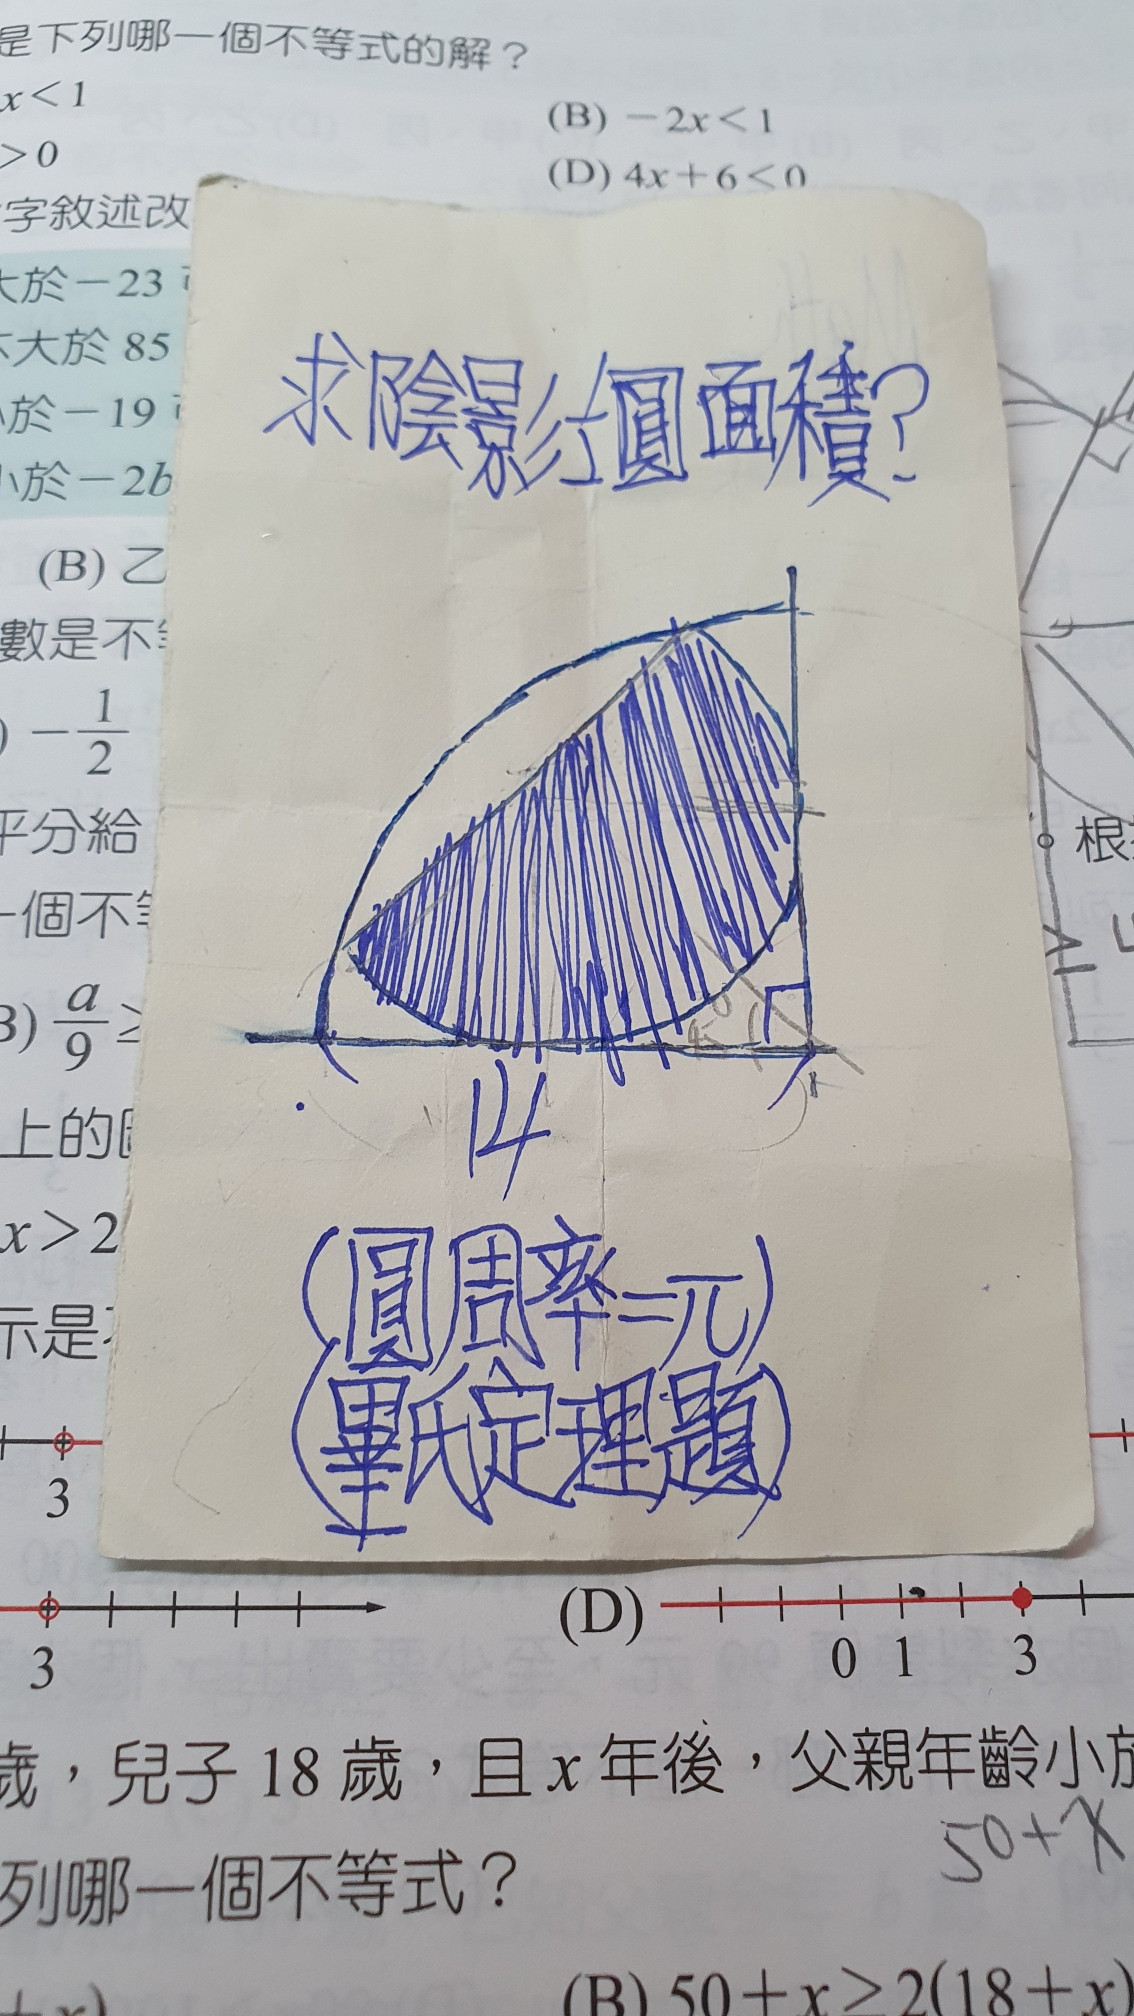 是下列哪一個不等式的解？
x＜1
(B) －2x＜1
＞0
(D) 4x＋6＜0
字敘述改
大於－23
不大於 85
小於－19
小於－2b
(B) 乙
數是不等
) －1/2
平分給
一個不等
B) a/9 ≥
上的
x＞2
示是
3
求陰影圓面積？
14
(圓周率=π)
(畢氏定理題)
根
3
(D)
0 1 3
歲，兒子 18 歲，且 x 年後，父親年齡小於
50+x
列哪一個不等式？
＋x)
(B) 50＋x≥2(18＋x)